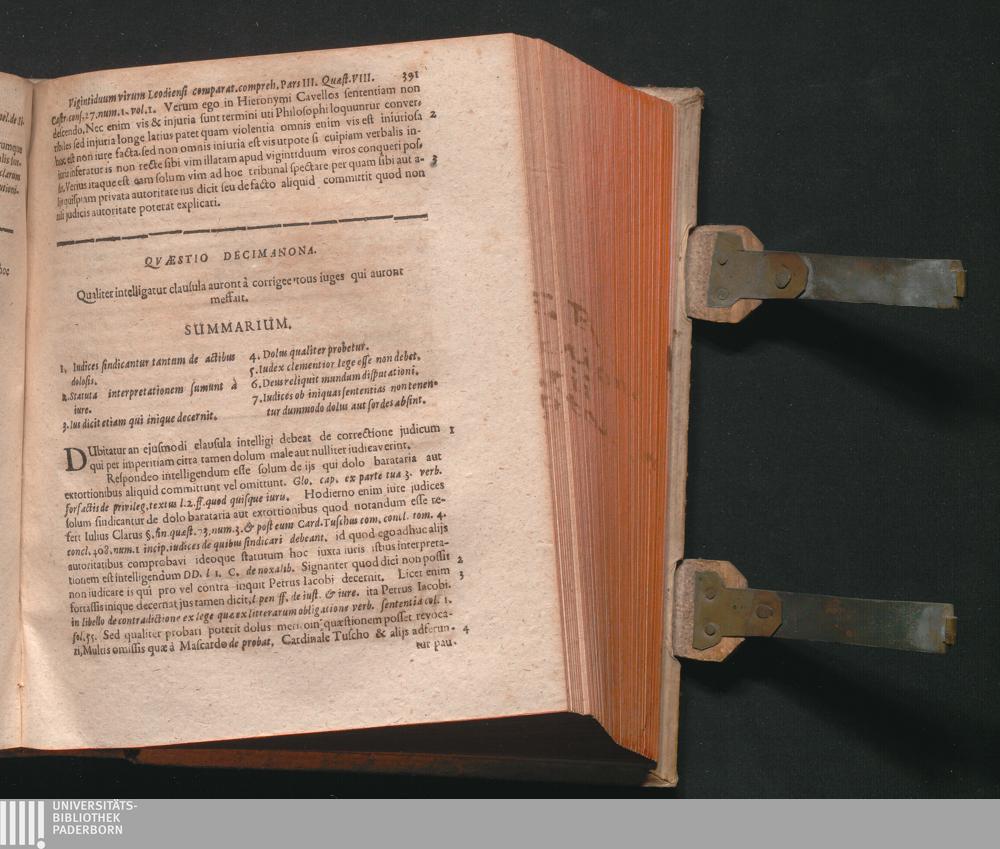 Vigintiduum virum Leodiensi comparat. compreh. Pars III. Quæst. VIII. 391
Castr. cons. 27. num. 1. vol. 1. Verum ego in Hieronymi Cavellos sententiam non
descendo, Nec enim vis & injuria sunt termini uti Philosophi loquuntur conver-
tibiles sed injuria longe latius patet quam violentia omnis enim vis est iniuriosa 2
hoc est non iure facta. sed non omnis iniuria est vis utpote si cuipiam verbalis in-
iuria inferatur is non recte sibi vim illatam apud vigintiduum viros conqueri pos-
sit. Verius itaque est eam solum vim ad hoc tribunal spectare per quam sibi aut a- 3
lijs quispiam privata autoritate ius dicit seu de facto aliquid committit quod non
nisi judicis autoritate poterat explicari.
QVÆSTIO DECIMANONA.
Qualiter intelligatur clausula auront à corrigee tous iuges qui auront
meffait.
SUMMARIUM.
1. Iudices sindicantur tantum de actibus
dolosis.
2. Statuta interpretationem sumunt à
iure.
3. Ius dicit etiam qui inique decernit.
4. Dolus qualiter probetur.
5. Iudex clementior lege esse non debet.
6. Deus reliquit mundum disputationi.
7. Iudices ob iniquas sententias non tenen-
tur dummodo dolus aut sordes absint.
DUbitatur an ejusmodi clausula intelligi debeat de correctione judicum 1
qui per imperitiam citra tamen dolum male aut nulliter iudicaverint.
Respondeo intelligendum esse solum de ijs qui dolo barataria aut
extortionibus aliquid committunt vel omittunt. Glo. cap. ex parte tua 3. verb.
forsactis de privileg. textus l. 2. ff. quod quisque iuris. Hodierno enim iure judices
solum sindicantur de dolo barataria aut extortionibus quod notandum esse re-
fert Iulius Clarus §. fin. quæst. 73. num. 3. & post eum Card. Tuschus com. concl. tom. 4.
concl. 408. num. 1 incip. iudices de quibus sindicari debeant. id quod ego adhuc alijs
autoritatibus comprobavi ideoque statutum hoc iuxta iuris istius interpreta-
tionem est intelligendum DD. l 1. C. de noxalib. Signanter quod dici non possit 2
non iudicare is qui pro vel contra inquit Petrus Iacobi decernit. Licet enim 3
fortassis inique decernat jus tamen dicit, l pen ff. de iust. & iure. ita Petrus Iacobi.
in libello de contradictione ex lege quæ ex litterarum obligatione verb. sententia col. 1.
fol. 55. Sed qualiter probari poterit dolus quæstionem posset revoca-
ri, Multis omissis quæ à Mascardo de probat. Cardinale Tuscho & alijs adferun- 4
tur pau-
UNIVERSITÄTS-
BIBLIOTHEK
PADERBORN